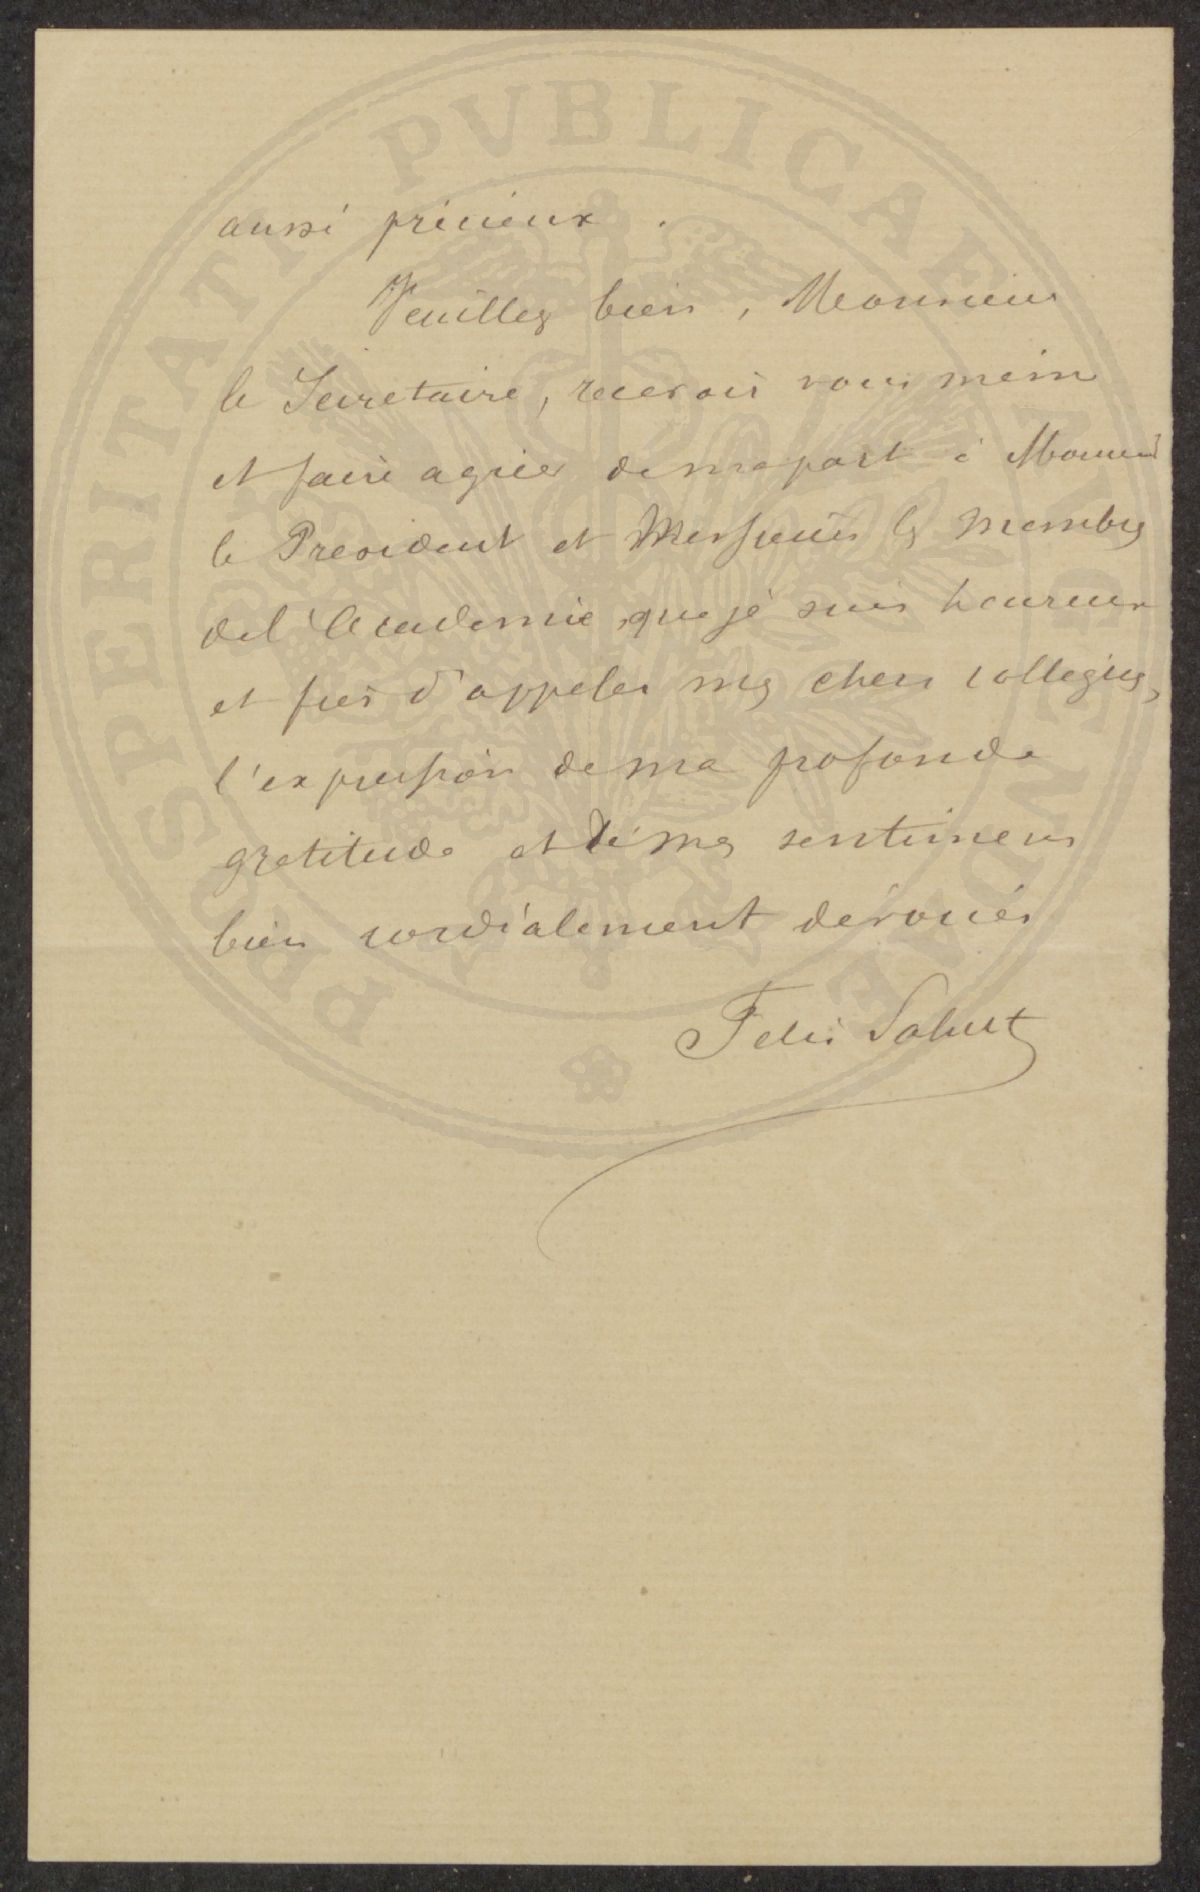 aussi précieux.
Veuillez bien, Monsieur
le Secretaire, recevoir vous meme
et faire agréer de ma part à Monsieur
le President et Messieurs les Membres
de l'Academie, que je suis heureux
et fier d'appeler mes chers collegues,
l'expression de ma profonde
gratitude et de mes sentimens
bien cordialement dévoués
Felix Sahut
PROSPERITATI PVBLICAE AVGENDAE